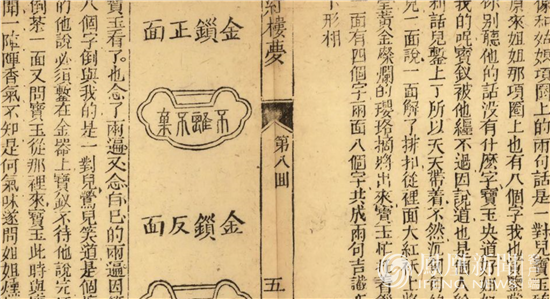 像和姑娘項圈上的兩句話是一對兒寶
原來姐姐那項圈上也有八個字我也
你別聽他的話沒有什麽字寶玉央道好姐
我的呢寶釵被他纏不過因說道也是個
利話兒鏨上了所以天天帶着不然沉
兒一面說一面解了排扣從裡面大紅袄上將
黃金燦爛的瓔珞摘將出來寶玉忙
一面有四個字兩面八個字共成兩句吉讖
下形相
紅樓夢
第八回
五
金鎖正面
不離不棄
金鎖反面
寶玉看了也念了兩遍又念自已的兩遍因
八個字倒與我的是一對兒鶯兒笑道是個
的他說必須鏨在金器上寶釵不待他說完
倒茶一面又問寶玉從那裡來寶玉此時與
聞一陣陣香氣不知是何氣味遂問姐姐燻